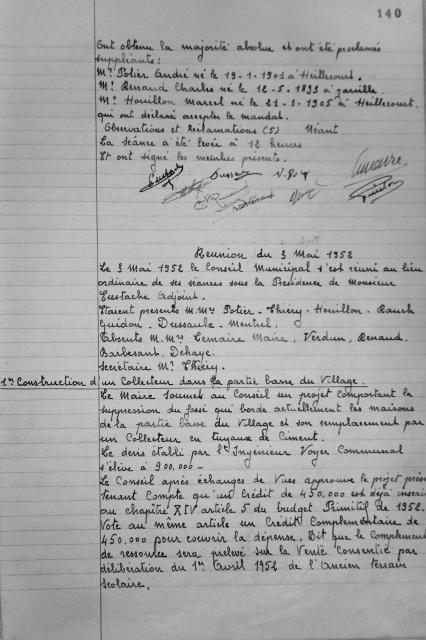 140
Ont obtenu la majorité absolue et ont été proclamés
suppléants :
Mr Potier André né le 19-1-1901 à Heillecourt.
Mr Renaud Charles né le 12-5-1893 à
Mr Houillon Marcel né le 21-3-1905 à Heillecourt.
qui ont déclaré accepter le mandat.
Observations et Réclamations (5) Néant
La séance a été levée à 12 heures
Et ont signé les membres présents.
Reunion du 3 Mai 1952
Le 3 Mai 1952 le Conseil Municipal s'est réuni au lieu
ordinaire de ses séances sous la Présidence de Monsieur
Eustache Adjoint.
Etaient presents M.Ms Potier - Thiéry - Houillon - Rauch
Guidon - Dussaulx - Mentrel.
Absents M.Ms Lemaire Maire, Verdun, Renaud,
Barbesant, Dehaye.
Secrétaire Mr Thiéry.
1er Construction d'un Collecteur dans la partie basse du Village.
Le Maire soumet au Conseil un projet comportant la
suppression du fossé qui borde actuellement les maisons
de la partie basse du Village et son remplacement par
un Collecteur en tuyaux de Ciment.
Le devis établi par l'Ingénieur Voyer Communal
s'élève à 900.000 -
Le Conseil après échanges de Vues approuve le projet prés
tenant Compte qu'un Crédit de 450.000 est déjà inscrit
au chapitre XIV article 5 du budget Primitif de 1952.
Vote au même article un Crédit Complémentaire de
450.000 pour couvrir la dépense. Dit que le Complément
de ressource sera prélevé sur la Vente Consentie par
délibération du 1er Avril 1952 de l'Ancien terrain
scolaire.